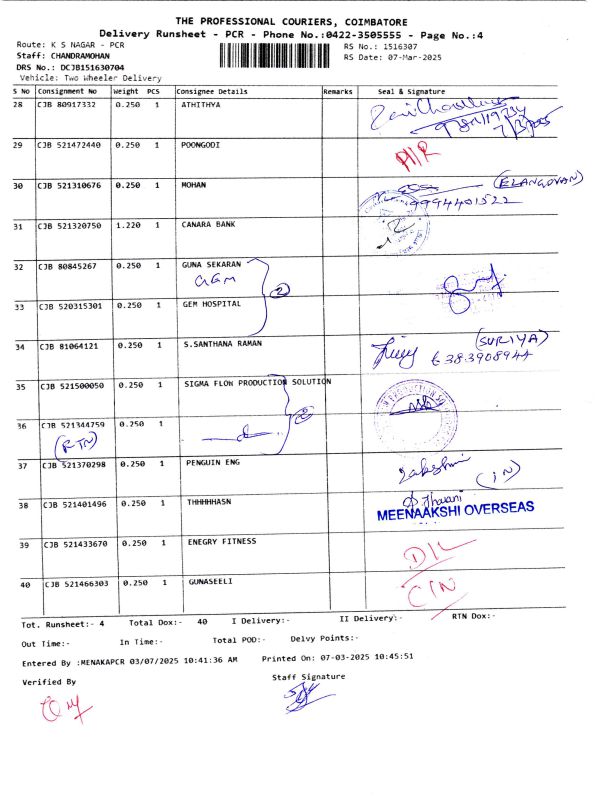 THE PROFESSIONAL COURIERS, COIMBATORE
Delivery Runsheet - PCR - Phone No.:0422-3505555 - Page No.:4
Route: K S NAGAR - PCR
RS No.: 1516307
Staff: CHANDRAMOHAN
RS Date: 07-Mar-2025
DRS No.: DCJB151630704
Vehicle: Two Wheeler Delivery
S No Consignment No Weight PCS Consignee Details Remarks Seal & Signature
28 CJB 80917332 0.250 1 ATHITHYA
29 CJB 521472440 0.250 1 POONGODI
30 CJB 521310676 0.250 1 MOHAN (ELANGOVAN)
9994401522
31 CJB 521320750 1.220 1 CANARA BANK
32 CJB 80845267 0.250 1 GUNA SEKARAN
GEM
2
33 CJB 520315301 0.250 1 GEM HOSPITAL
34 CJB 81064121 0.250 1 S.SANTHANA RAMAN (SURIYA)
6383908944
35 CJB 521500050 0.250 1 SIGMA FLOW PRODUCTION SOLUTION
2
36 CJB 521344759 0.250 1
(RTN)
37 CJB 521370298 0.250 1 PENGUIN ENG Lakshmi (IN)
38 CJB 521401496 0.250 1 THHHHHASN Tharani
MEENAAKSHI OVERSEAS
39 CJB 521433670 0.250 1 ENEGRY FITNESS D/L
40 CJB 521466303 0.250 1 GUNASEELI C/N
Tot. Runsheet:- 4 Total Dox:- 40 I Delivery:- II Delivery:- RTN Dox:-
Out Time:- In Time:- Total POD:- Delvy Points:-
Entered By :MENAKAPCR 03/07/2025 10:41:36 AM Printed On: 07-03-2025 10:45:51
Verified By Staff Signature